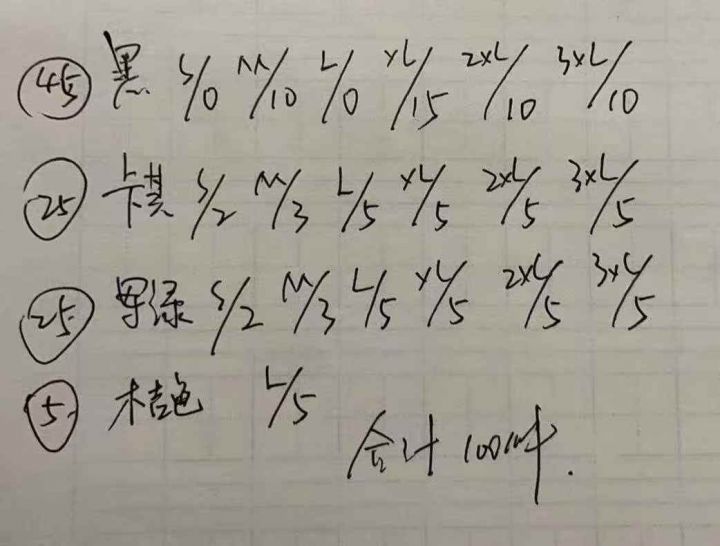 45 黑 S/0 M/10 L/0 XL/15 2XL/10 3XL/10
25 卡其 S/2 M/3 L/5 XL/5 2XL/5 3XL/5
25 军绿 S/2 M/3 L/5 XL/5 2XL/5 3XL/5
5 桔色 L/5
合计 100件.